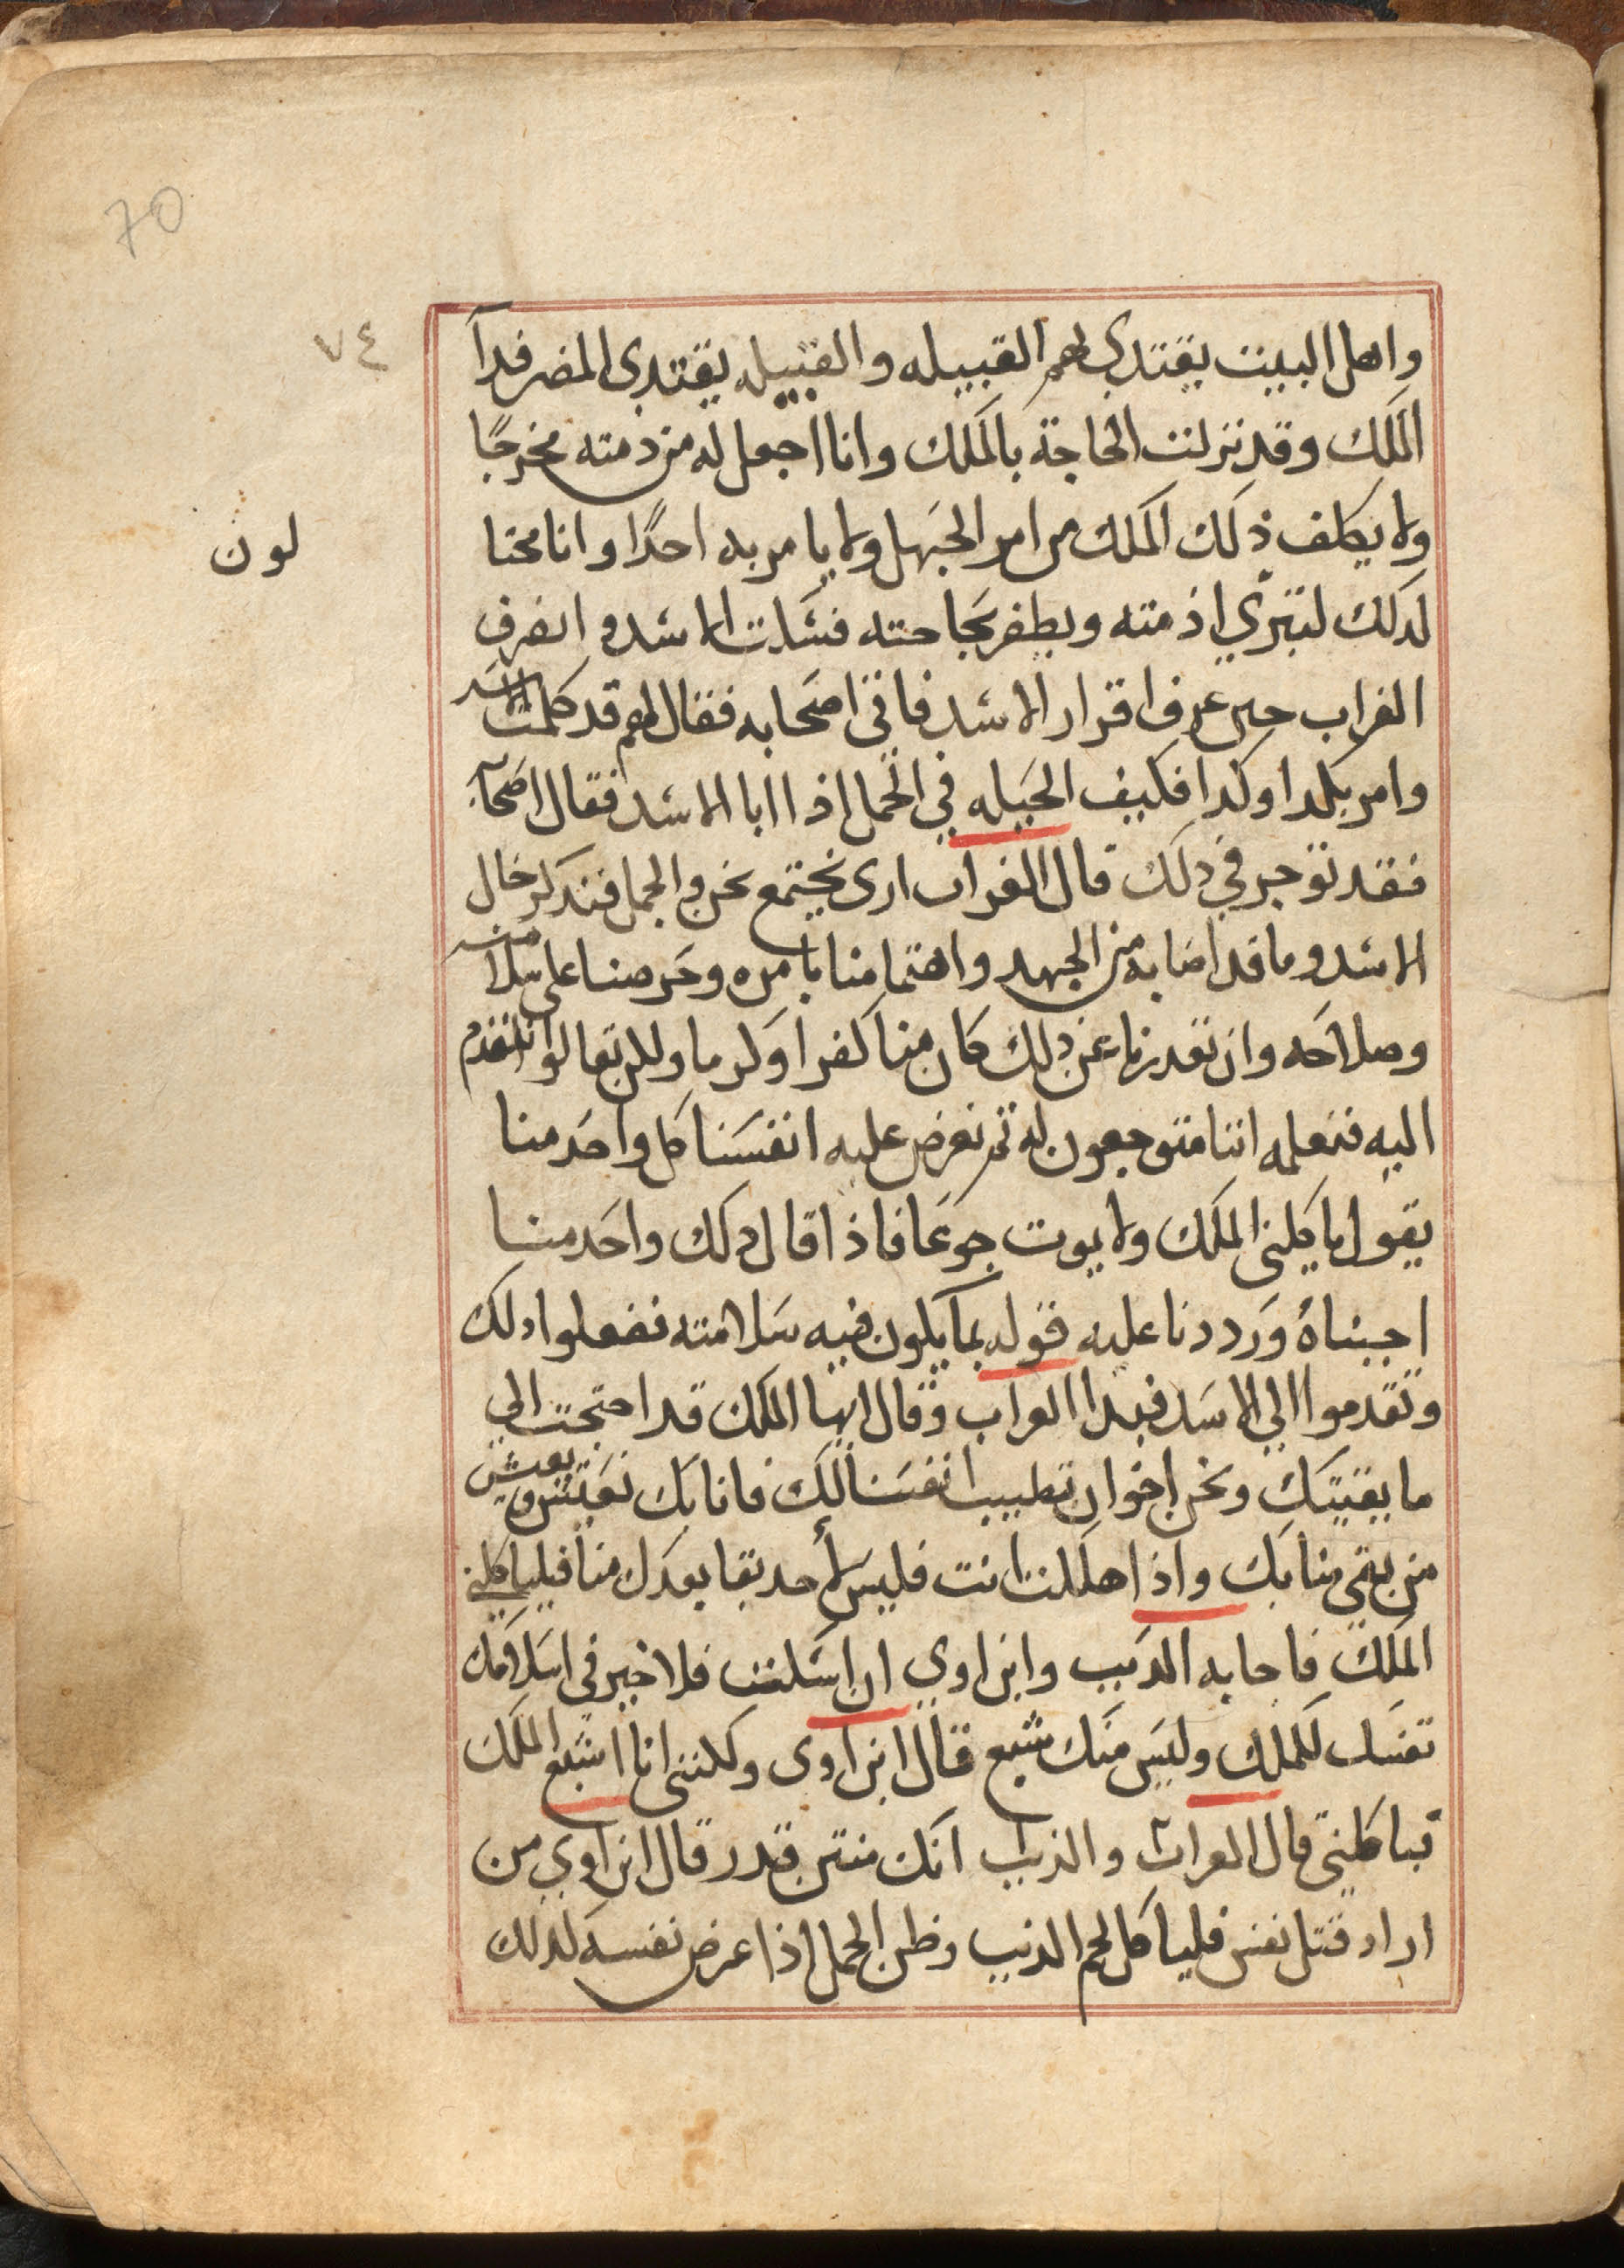 70
٧٤
واهل البيت يقتدي بهم القبيله والقبيله يقتدى المصر فدآ
الملك وقد نزلت الحاجة بالملك وانا اجعل له من ذمته مخرجًا
ولا يكلف ذلك الملك من امر الجهل ولا يامر به احدًا وانا محتا
لون
لدلك لنبري اذمته ويظفر بحاجته فسكت الاسد و انصرف
الغراب حين عرف اقرار الاسد فاتى اصحابه فقال لهم قد كلمت الاسد
وامر بكدا وكدا فكيف الحيله في الجمل اذا ابا الاسد فقال اصحابه
فقد توجر في دلك قال الغراب ارى نجتمع نحن والجمل فندكر حال
الاسد وما قد اصابه من الجهد واهتمامنا بامره وحرصنا على سلامته
وصلاحه وان نعد زمام عن دلك كان منا كفرا وكرما ولكن تعالوا نتقدم
اليه فنعلمه اننا متوجعون له ثم نعرض عليه انفسنا كل واحد منا
يقول ياكلنى الملك ولا يموت جوعا فاذا قال دلك واحد منا
اجبناه ورددنا عليه قوله بما يكون فيه سلامته ففعلوا دلك
وتقدموا الي الاسد فبدا الغراب وقال ايها الملك قد احتجت الي
ما يقيتك ونحن اخوان تطيب انفسنا لك فانا بك نعيش ويعيش
من بقي منا بك واذا هلكت انت فليس لأحد بقا بعدك منا فلياكلنى
الملك فاجابه الديب وابن اوي ان اسكت فلا خير في اسلامك
نفسك للملك وليس منك شبع قال ابن اوى ولكننى انا اشبع الملك
فياكلني قال الغراب والذيب انك منتن قدر قال ابن اوي من
اراد قتل نفسه فلياكل لحم الذيب وظن الجمل اذا عرض نفسه لذلك